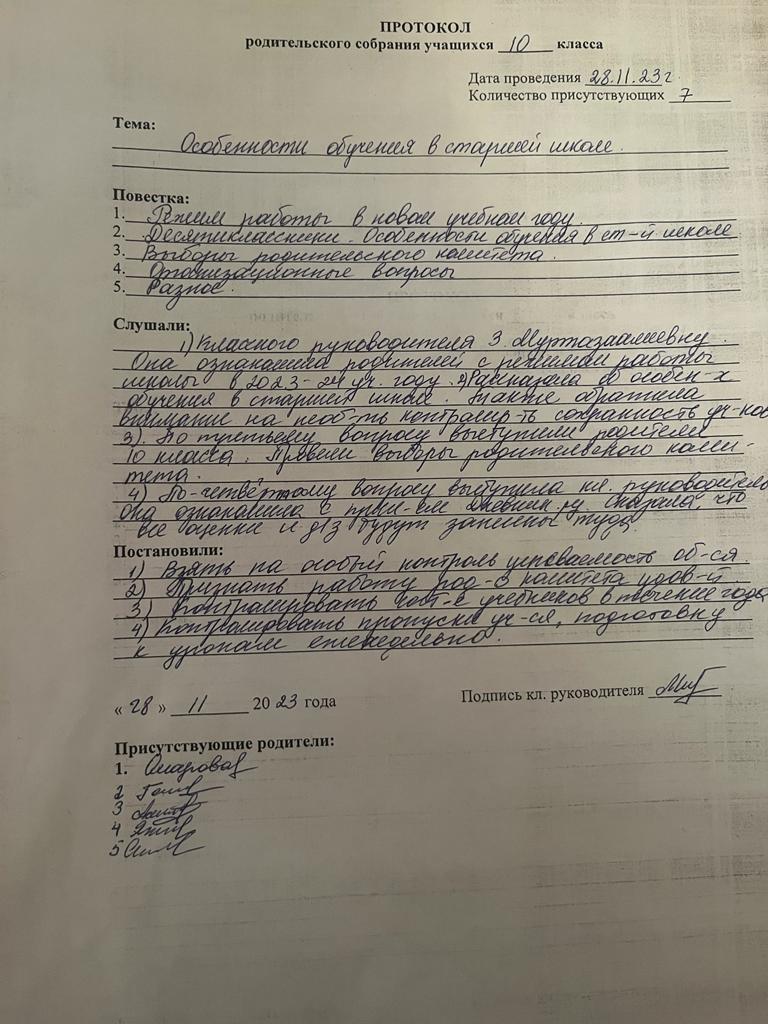 ПРОТОКОЛ
родительского собрания учащихся 10 класса
Дата проведения 28.11.23г
Количество присутствующих 7
Тема:
Особенности обучения в старшей школе.
Повестка:
1. Режим работы в новом учебном году.
2. Десятиклассники. Особенности обучения в ст-й школе
3. Выборы родительского комитета.
4. Организационные вопросы
5. Разное.
Слушали:
1) Классного руководителя З.
Она ознакомила родителей с режимом работы
школы в 2023-24 уч. году. 2) Рассказала об особен-х
обучения в старшей школе. Также обратила
внимание на необ-ть контролир-ть сохранность уч-ков
3). По третьему вопросу выступили родители
10 класса. Провели выборы родительского коми-
тета.
4) По четвёртому вопросу выступила кл. руководитель
она ознакомила с сказала, что
все оценки и д/з будут занесены туда.
Постановили:
1) Взять на особый контроль успеваемость об-ся.
2) Признать работу род-о комитета удов-й.
3) Контролировать учебников в течение года
4) Контролировать пропуски уч-ся, подготовку
к урокам еженедельно.
« 28 » 11 2023 года
Подпись кл. руководителя
Присутствующие родители:
1. Омарова
2
3
4
5